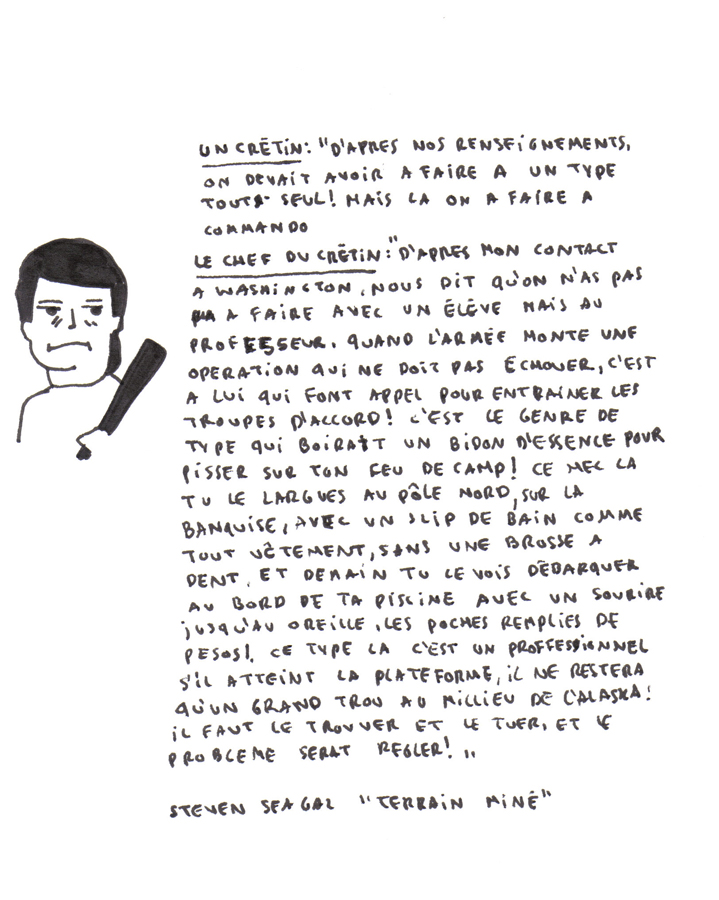 UN CRÊTIN: "D'APRES NOS RENSEIGNEMENTS,
ON DEVAIT AVOIR A FAIRE A UN TYPE
TOUT SEUL! MAIS LA ON A FAIRE A
COMMANDO "
LE CHEF DU CRÊTIN: "D'APRES MON CONTACT
A WASHINGTON, NOUS DIT QU'ON N'AS PAS
A FAIRE AVEC UN ÉLÈVE MAIS AU
PROFESSEUR. QUAND L'ARMÉE MONTE UNE
OPERATION QUI NE DOIT PAS ÉCHOUER, C'EST
A LUI QUI FONT APPEL POUR ENTRAINER LES
TROUPES D'ACCORD! C'EST LE GENRE DE
TYPE QUI BOIRAIT UN BIDON D'ESSENCE POUR
PISSER SUR TON FEU DE CAMP! CE MEC LA
TU LE LARGUES AU PÔLE NORD, SUR LA
BANQUISE, AVEC UN SLIP DE BAIN COMME
TOUT VÊTEMENT, SANS UNE BROSSE A
DENT, ET DEMAIN TU LE VOIS DÉBARQUER
AU BORD DE TA PISCINE AVEC UN SOURIRE
JUSQU'AU OREILLE, LES POCHES REMPLIES DE
PESOS! CE TYPE LA C'EST UN PROFFESSIONNEL
S'IL ATTEINT LA PLATEFORME, IL NE RESTERA
QU'UN GRAND TROU AU MILLIEU DE L'ALASKA!
IL FAUT LE TROUVER ET LE TUER, ET LE
PROBLEME SERAT REGLER! "

STEVEN SEAGAL "TERRAIN MINÉ"